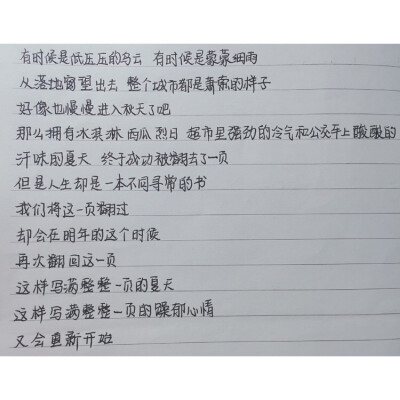 有时候是低压压的乌云 有时候是蒙蒙细雨
从落地窗望出去 整个城市都是萧索的样子
好像也慢慢进入秋天了吧
那么拥有冰淇淋 西瓜 烈日 超市里强劲的冷气和公交车上酸酸的
汗味的夏天 终于成功被翻去了一页
但是人生却是一本不同寻常的书
我们将这一页翻过
却会在明年的这个时候
再次翻回这一页
这样写满整整一页的夏天
这样写满整整一页的躁郁心情
又会重新开始